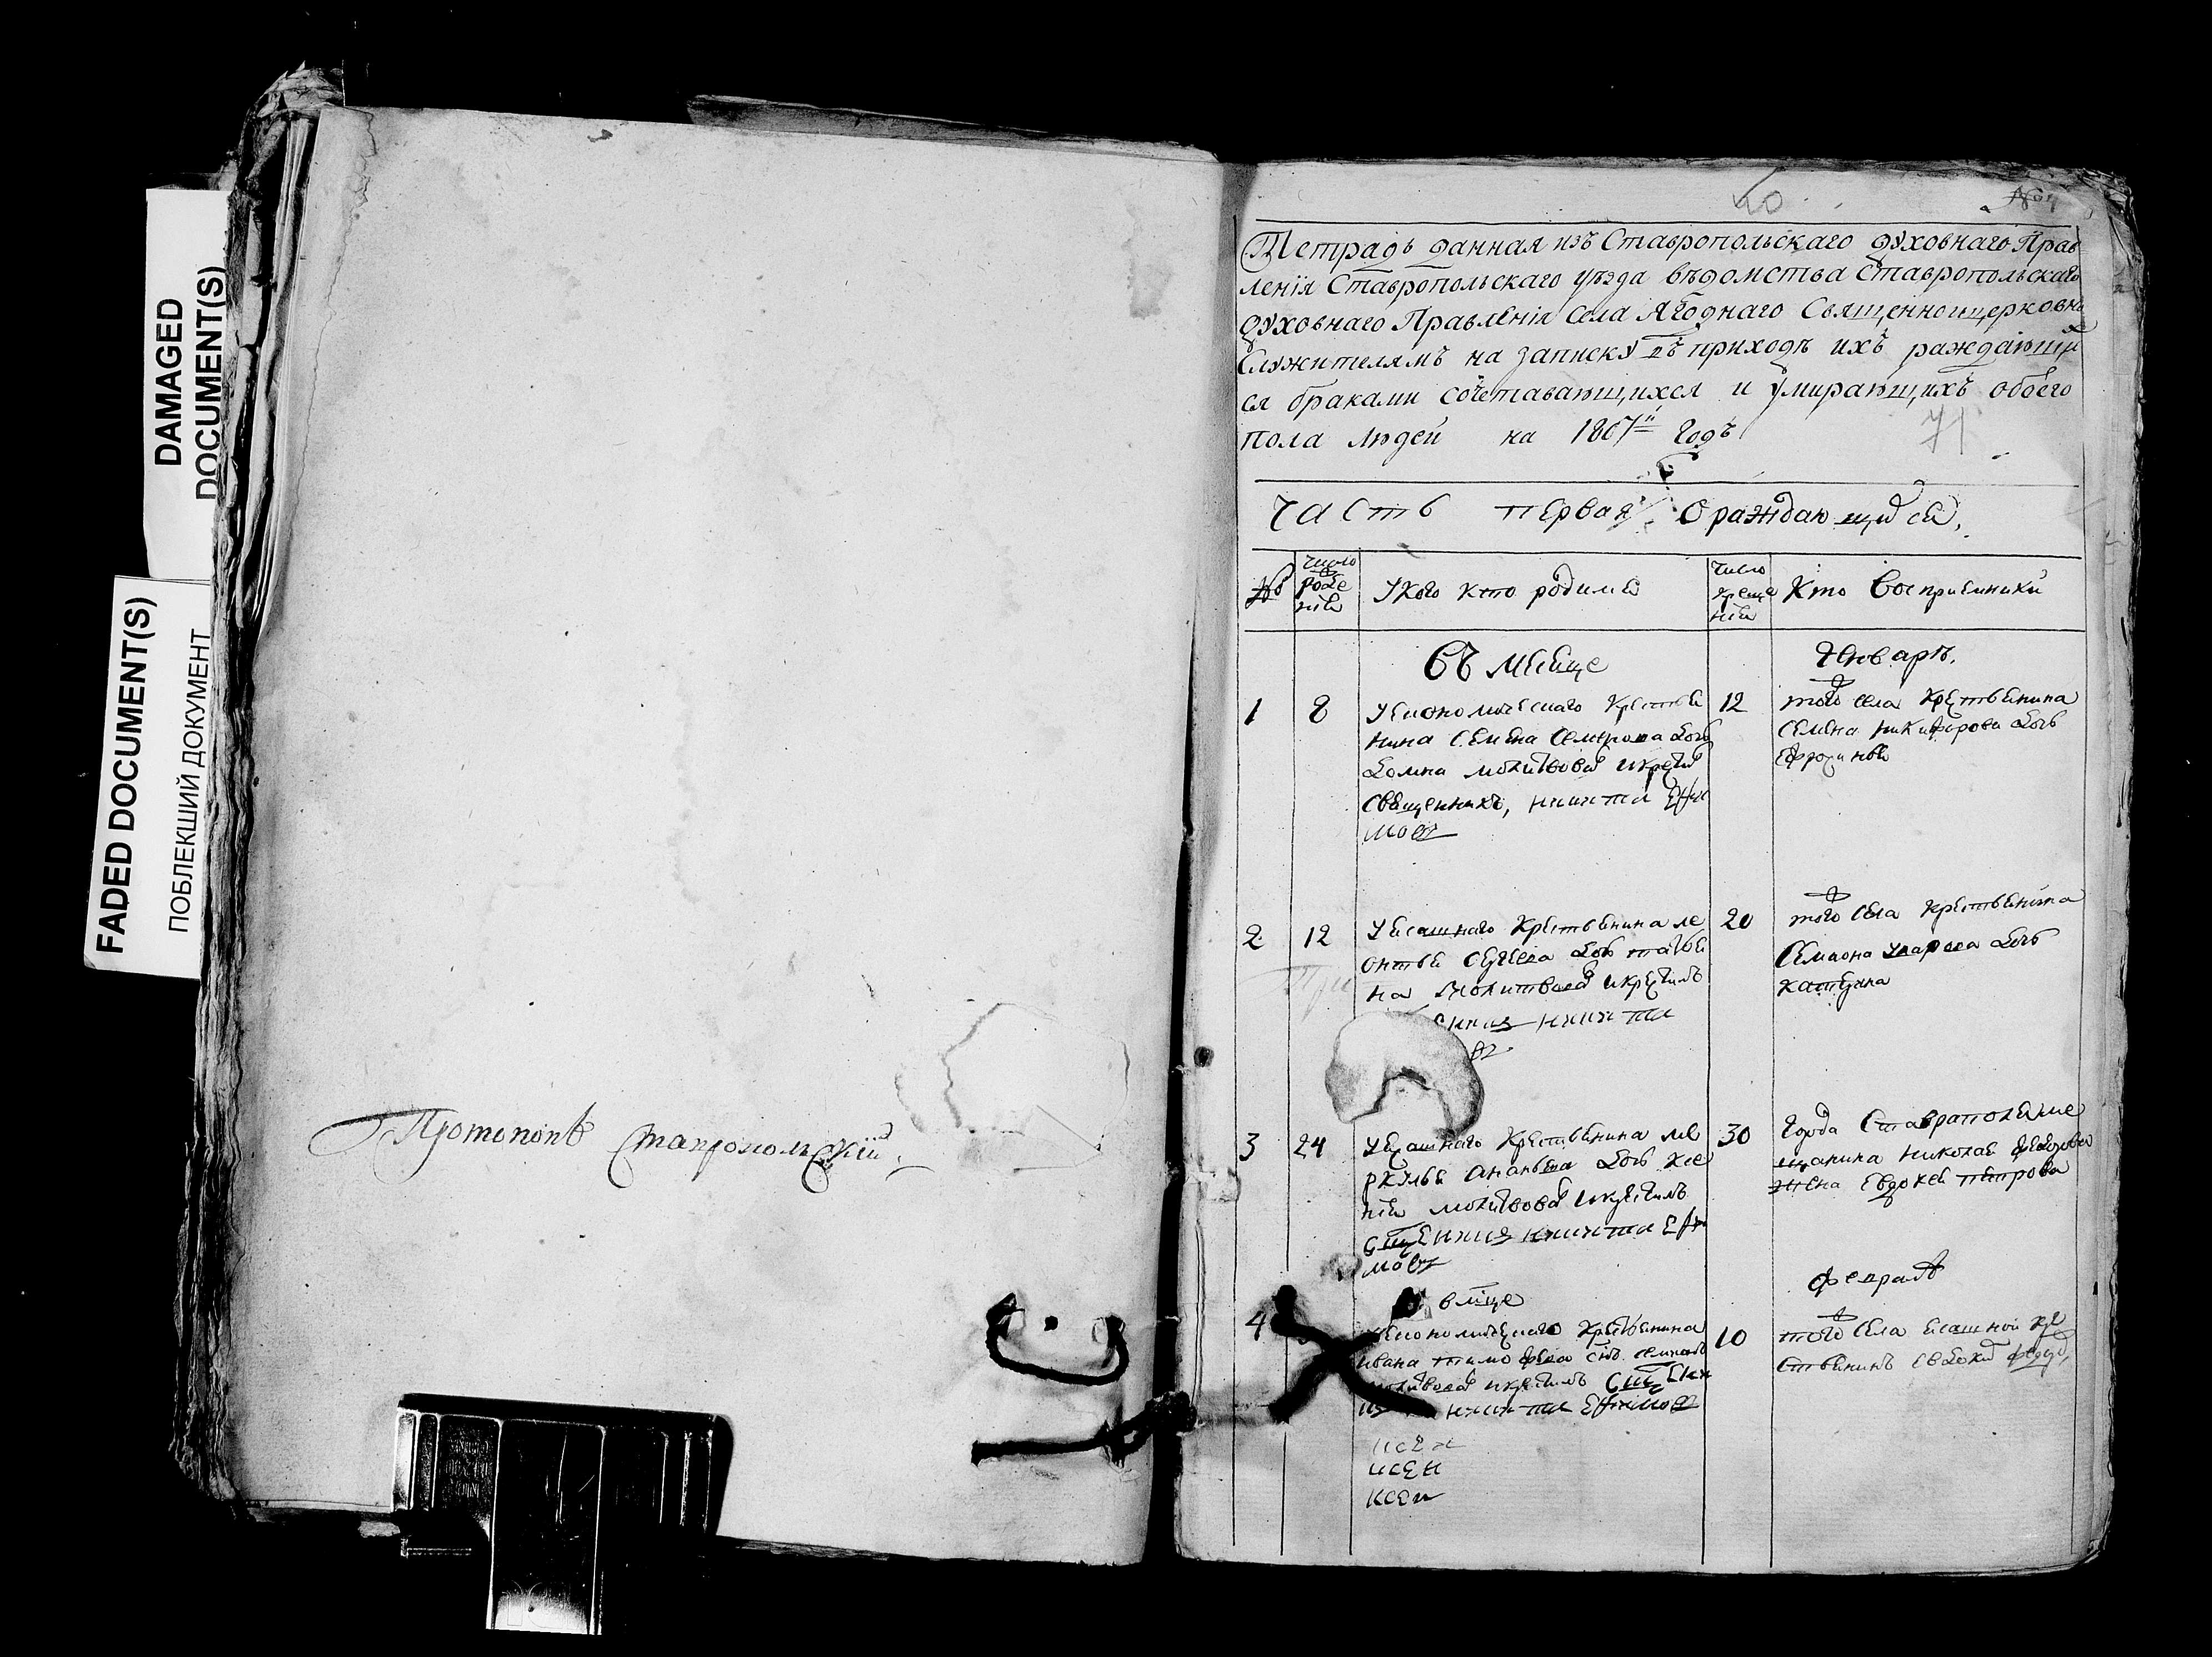 DAMAGED
DOCUMENT(S)
FADED DOCUMENT(S)
ПОБЛЕКШИЙ ДОКУМЕНТ
Протопопъ Ставропольскій
40
№ 4
Тетрадь данная изъ Ставропольскаго духовнаго Прав
ленія Ставропольскаго уѣзда вѣдомства Ставропольскаго
духовнаго Правленія села Ягоднаго Священноицерковно
служителямъ на записку въ приходѣ ихъ раждающи
ся браками сочетавающихся и умирающихъ обоего
пола людей на 1807й годъ
71
Часть первая О раждающихся.
№
число
рожде
нія
У кого кто родился
число
креще
нія
Кто Восприемники
Въ месяце
Январѣ.
1 8
Уекономическаго Крестья
нина Семена дочь
Домна молитвовал и крестил
Священникъ, никита Ефи
мовъ
12
того села Крестьянина
Семена никифорова дочь
Ефросинья
2 12
Уясашнаго Крестьянина ле
онтья дочь татья
на молитвовал и крестилъ
никита
20
того села Крестьянина
дочь
3 24
Уясашнаго Крестьянина ме
ркулья ананьева дочь ксе
нія молитвовал и крестилъ
священникъ никита Ефи
мовъ
30
Города Ставрополя ме
щанина николая федорова
жена Евдокея петрова
в мце
феврале
4
Уекономическаго Крестьянина
ивана тимофеева сынъ
молитвовал и крестилъ
никита Ефимовъ
10
того села ясашной кре
стьянинъ
ксен
ксен
ксен